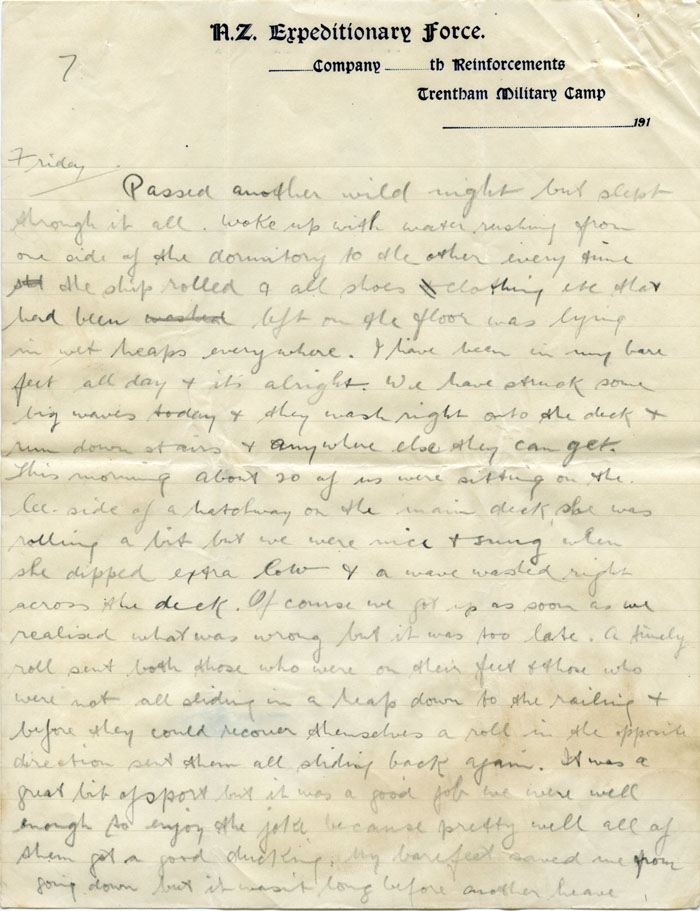 N.Z. Expeditionary Force.
7
Company th Reinforcements
Trentham Military Camp
191
Friday
Passed another wild night but slept
through it all. Woke up with water rushing from
one side of the dormitory to the other every time
the ship rolled & all shoes clothing etc that
had been washed left on the floor was lying
in wet heaps everywhere. I have been in my bare
feet all day & it's alright. We have struck some
big waves today & they wash right onto the deck &
run down stairs & anywhere else they can get.
This morning about 20 of us were sitting on the
lee-side of a hatchway on the main deck, she was
rolling a bit but we were nice & snug when
she dipped extra low & a wave washed right
across the deck. Of course we got up as soon as we
realised what was wrong but it was too late. A timely
roll sent both those who were on their feet & those who
were not all sliding in a heap down to the railing &
before they could recover themselves a roll in the opposite
direction sent them all sliding back again. It was a
great bit of sport but it was a good job we were well
enough to enjoy the joke because pretty well all of
them got a good ducking. My bare feet saved me from
going down but it wasn't long before another heave